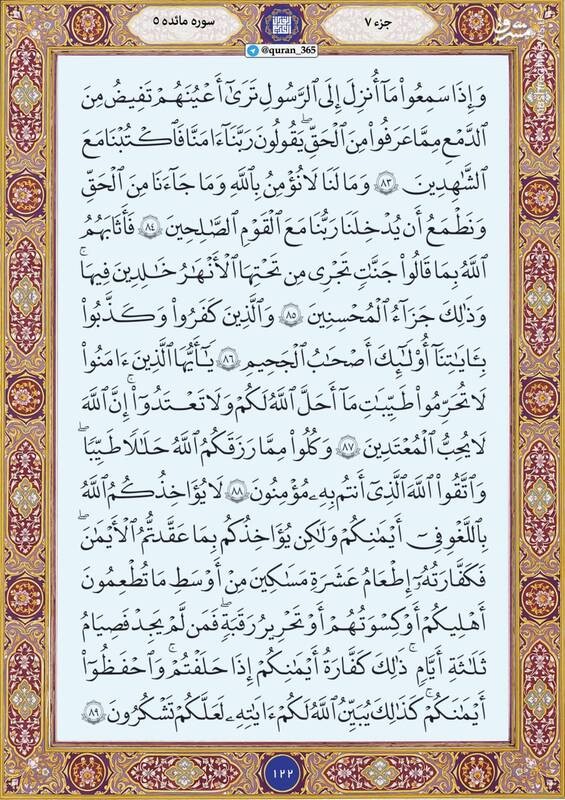 جزء ۷
سوره مائده ۵
@quran_365
وَإِذَا سَمِعُوا۟ مَآ أُنزِلَ إِلَى ٱلرَّسُولِ تَرَىٰٓ أَعْيُنَهُمْ تَفِيضُ مِنَ
ٱلدَّمْعِ مِمَّا عَرَفُوا۟ مِنَ ٱلْحَقِّ ۖ يَقُولُونَ رَبَّنَآ ءَامَنَّا فَٱكْتُبْنَا مَعَ
ٱلشَّٰهِدِينَ ۝٨٣ وَمَا لَنَا لَا نُؤْمِنُ بِٱللَّهِ وَمَا جَآءَنَا مِنَ ٱلْحَقِّ
وَنَطْمَعُ أَن يُدْخِلَنَا رَبُّنَا مَعَ ٱلْقَوْمِ ٱلصَّٰلِحِينَ ۝٨٤ فَأَثَٰبَهُمُ
ٱللَّهُ بِمَا قَالُوا۟ جَنَّٰتٍ تَجْرِى مِن تَحْتِهَا ٱلْأَنْهَٰرُ خَٰلِدِينَ فِيهَا ۚ
وَذَٰلِكَ جَزَآءُ ٱلْمُحْسِنِينَ ۝٨٥ وَٱلَّذِينَ كَفَرُوا۟ وَكَذَّبُوا۟
بِـَٔايَٰتِنَآ أُو۟لَٰٓئِكَ أَصْحَٰبُ ٱلْجَحِيمِ ۝٨٦ يَٰٓأَيُّهَا ٱلَّذِينَ ءَامَنُوا۟
لَا تُحَرِّمُوا۟ طَيِّبَٰتِ مَآ أَحَلَّ ٱللَّهُ لَكُمْ وَلَا تَعْتَدُوٓا۟ ۚ إِنَّ ٱللَّهَ
لَا يُحِبُّ ٱلْمُعْتَدِينَ ۝٨٧ وَكُلُوا۟ مِمَّا رَزَقَكُمُ ٱللَّهُ حَلَٰلًا طَيِّبًا ۚ
وَٱتَّقُوا۟ ٱللَّهَ ٱلَّذِىٓ أَنتُم بِهِۦ مُؤْمِنُونَ ۝٨٨ لَا يُؤَاخِذُكُمُ ٱللَّهُ
بِٱللَّغْوِ فِىٓ أَيْمَٰنِكُمْ وَلَٰكِن يُؤَاخِذُكُم بِمَا عَقَّدتُّمُ ٱلْأَيْمَٰنَ ۖ
فَكَفَّٰرَتُهُۥٓ إِطْعَامُ عَشَرَةِ مَسَٰكِينَ مِنْ أَوْسَطِ مَا تُطْعِمُونَ
أَهْلِيكُمْ أَوْ كِسْوَتُهُمْ أَوْ تَحْرِيرُ رَقَبَةٍ ۖ فَمَن لَّمْ يَجِدْ فَصِيَامُ
ثَلَٰثَةِ أَيَّامٍ ۚ ذَٰلِكَ كَفَّٰرَةُ أَيْمَٰنِكُمْ إِذَا حَلَفْتُمْ ۚ وَٱحْفَظُوٓا۟
أَيْمَٰنَكُمْ ۚ كَذَٰلِكَ يُبَيِّنُ ٱللَّهُ لَكُمْ ءَايَٰتِهِۦ لَعَلَّكُمْ تَشْكُرُونَ ۝٨٩
۱۲۲